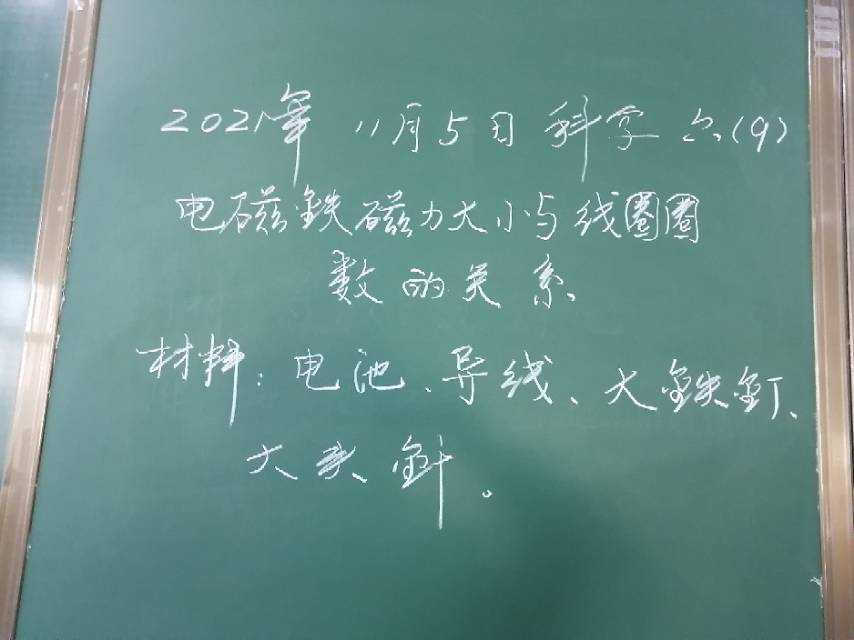 2021年 11月5日 科学 六(9)
电磁铁磁力大小与线圈圈
数的关系
材料:电池、导线、大铁钉、
大头针。